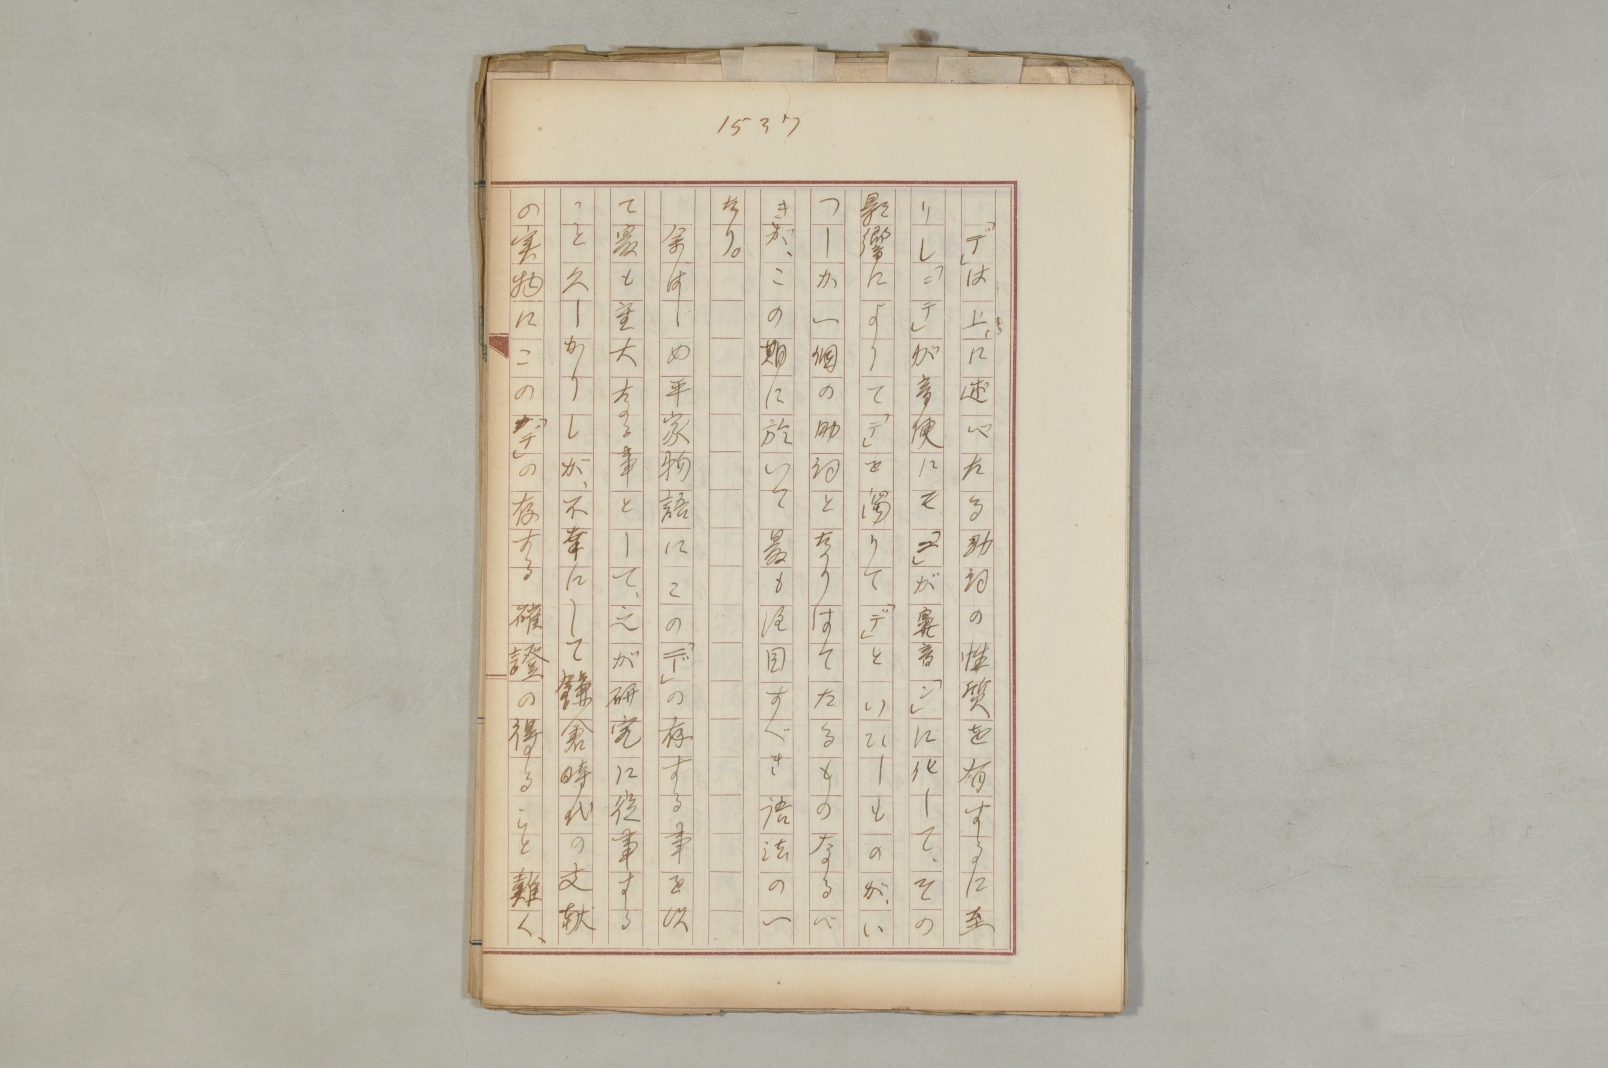 1537
「デ」は上に述べたる助詞の性質を有するに至
りし「ニテ」が音便にて「ニ」が鼻音「ン」に化して、その
影響によりて「テ」を濁りて「デ」といひしものが、い
つしか一個の助詞となりはてたるものなるべ
きが、この期に於いて最も注目すべき語法の一
なり。
余はじめ平家物語にこの「デ」の存する事を以
て最も重大なる事として、之が研究に従事する
こと久しかりしが、不幸にして鎌倉時代の文献
の実物にこの「デ」の存する確證の得ること難く、